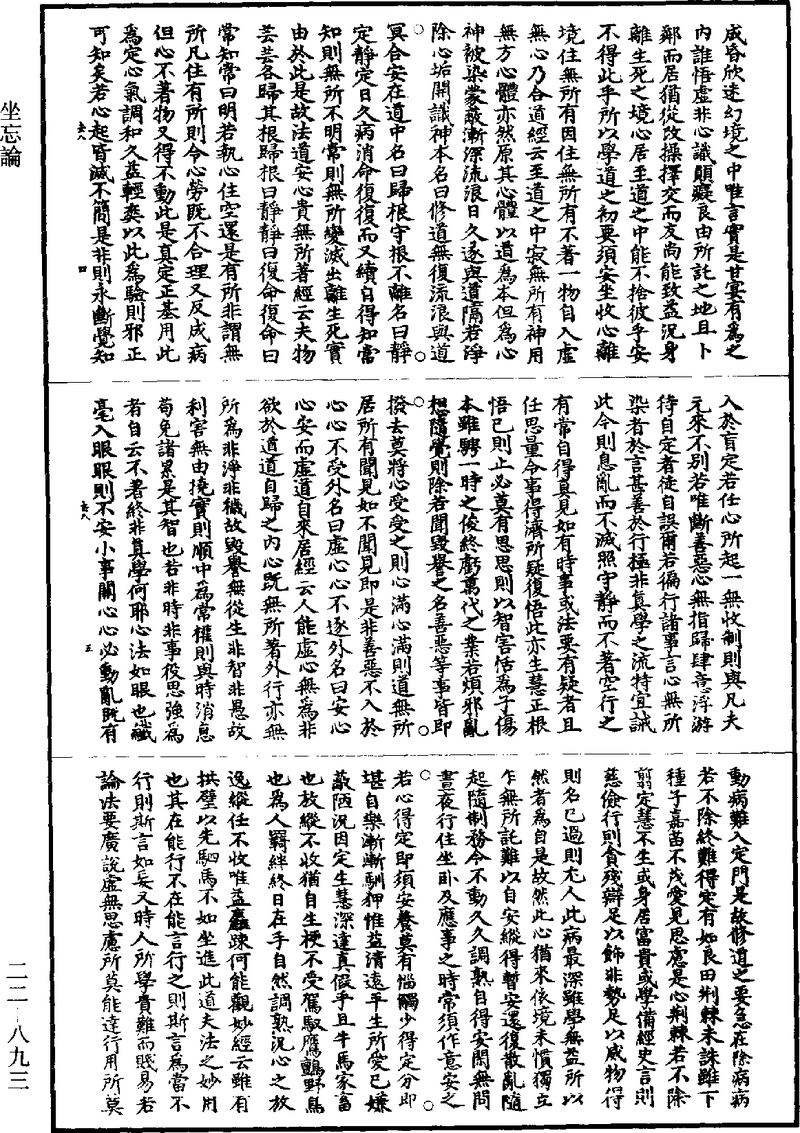 咸昏欣迷幻境之中唯言實是甘宴有為之
內誰悟虛非心識顛癡良由所託之地且卜
鄰而居猶從改操擇交而友尚能致益況身
離生死之境心居至道之中能不捨彼乎安
不得此乎所以學道之初要須安坐收心離
境住無所有因住無所有不著一物自入虛
無心乃合道經云至道之中寂無所有神用
無方心體亦然原其心體以道為本但為心
神被染蒙蔽漸深流浪日久遂與道隔若淨
除心垢開識神本名曰修道無復流浪與道
冥合安在道中名曰歸根守根不離名曰靜
定靜定日久病消命復復而又續自得知常
知則無所不明常則無所變滅出離生死實
由於此是故法道安心貴無所著經云夫物
芸芸各歸其根歸根曰靜靜曰復命復命曰
常知常曰明若執心住空還是有所非謂無
所凡住有所則令心勞既不合理又反成病
但心不著物又得不動此是真定正基用此
為定心氣調和久益輕爽以此為驗則邪正
可知矣若心起皆滅不簡是非則永斷覺知
去八 四
入於盲定若任心所起一無收制則與凡夫
元來不別若唯斷善惡心無指歸肆意浮游
待自定者徒自誤爾若徧行諸事言心無所
染者於言甚善於行極非真學之流特宜誡
此今則息亂而不滅照守靜而不著空行之
有常自得真見如有時事或法要有疑者且
任思量令事得濟所疑復悟此亦生慧正根
悟已則止必莫有思思則以智害恬為子傷
本雖騁一時之俊終虧萬代之業若煩邪亂
想隨覺則除若聞毀譽之名善惡等事皆即
撥去莫將心受受之則心滿心滿則道無所
居所有聞見如不聞見即是非善惡不入於
心心不受外名曰虛心心不逐外名曰安心
心安而虛道自來居經云人能虛心無為非
欲於道道自歸之內心既無所著外行亦無
所為非淨非穢故毀譽無從生非智非愚故
利害無由撓實則順中為常權則與時消息
苟免諸累是其智也若非時非事役思強為
者自云不著終非真學何耶心法如眼也纖
毫入眼眼則不安小事關心心必動亂既有
去八 五
動病難入定門是故修道之要急在除病病
若不除終難得定有如良田荆棘未誅雖下
種子嘉苗不茂愛見思慮是心荆棘若不除
翦定慧不生或身居富貴或學備經史言則
慈儉行則貪殘辯足以飾非勢足以威物得
則名已過則尤人此病最深雖學無益所以
然者為自是故然此心猶來依境未慣獨立
乍無所託難以自安縱得暫安還復散亂隨
起隨制務令不動久久調熟自得安閑無問
晝夜行住坐臥及應事之時常須作意安之
若心得定即須安養莫有惱觸少得定分即
堪自樂漸漸馴狎惟益清遠平生所愛已嫌
蔽陋況因定生慧深達真假乎且牛馬家畜
也放縱不收猶自生梗不受駕馭鷹鸇野鳥
也為人羈絆終日在手自然調熟況心之放
逸縱任不收唯益麤疎何能觀妙經云雖有
拱璧以先駟馬不如坐進此道夫法之妙用
也其在能行不在能言行之則斯言為當不
行則斯言如妄又時人所學貴難而賤易若
論法要廣說虛無思慮所莫能達行用所莫
坐忘論
二二-八九三